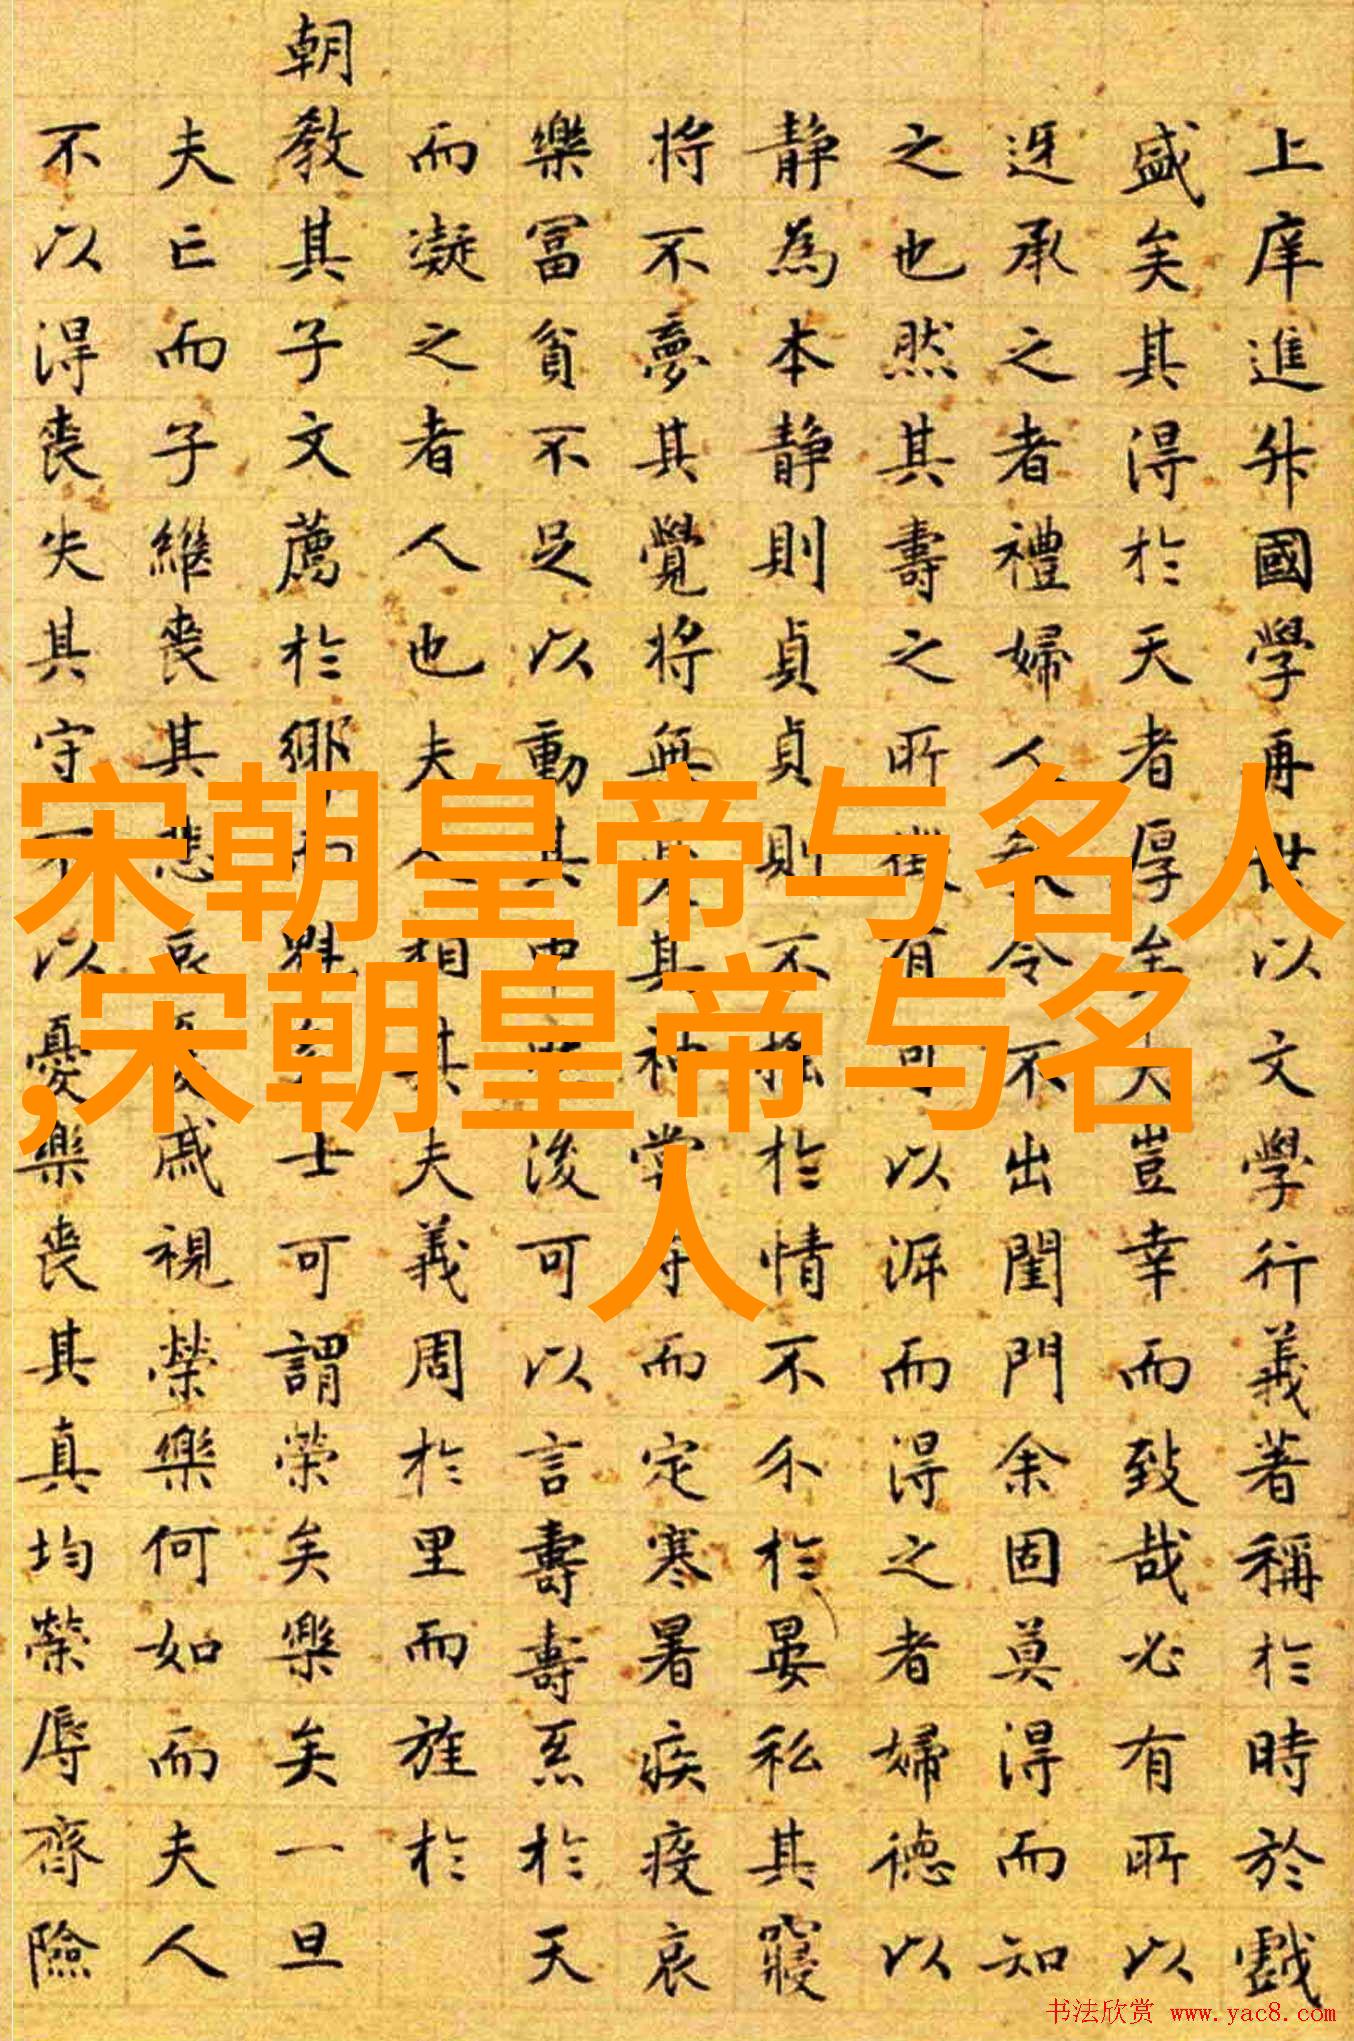 上庠進升國學再世以文學行義著稱於時於戲
盛矣其得於天者厚矣夫豈幸而致哉必有所以
迓承之者禮婦人令不出閨門余固莫得而知
之也然其壽之所有可以而得之者婦德以
靜為本靜則貞貞則不搖於情不於晏私其寢
將不夢其覺將無其神常守而定寒暑疾疫哀
樂冨貧不足以動其中後可以言壽壽於天
而凝之者人也夫人相其夫義周於里而旌於
朝教其子文薦於鄉而魁士可謂榮矣樂矣一旦
夫亡而子繼喪其悲哀憂戚視榮樂何如而夫人
不以得喪失其守不以憂樂喪其真均榮辱齊險
宋朝皇帝与名人
,宋朝皇帝与名
人
书法欣赏 www.yac8.com